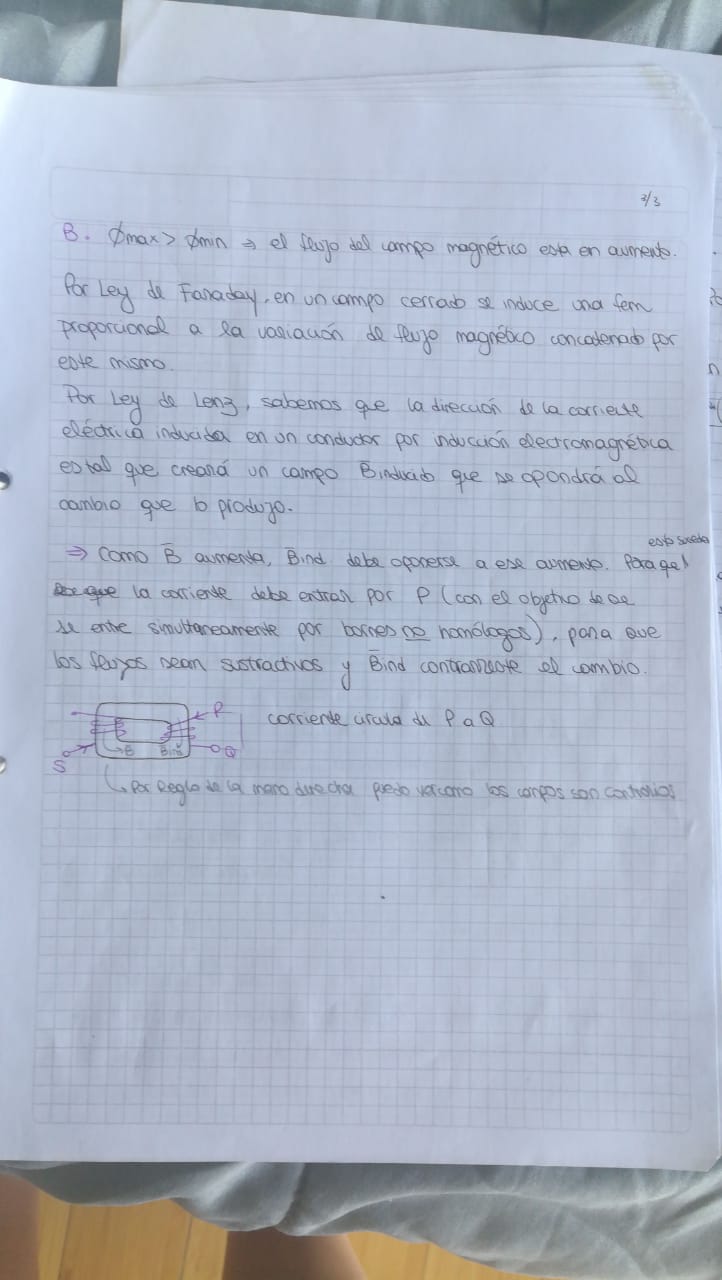 2/3
B. ϕmax > ϕmin ⇒ el flujo del campo magnético esta en aumento.
Por Ley de Faraday, en un campo cerrado se induce una fem
proporcional a la variación de flujo magnético concatenado por
este mismo.
Por Ley de Lenz, sabemos que la dirección de la corriente
eléctrica inducida en un conductor por inducción electromagnética
es tal que creará un campo B̄inducido que se opondrá al
cambio que lo produjo.
⇒ Como B̄ aumenta, B̄ind debe oponerse a ese aumento. Para que esto suceda
la corriente debe entrar por P (con el objetivo de
se entre simultaneamente por bornes no homólogos), para que
los flujos sean sustractivos y B̄ind contrarreste el cambio.
P
S
B̄
B̄ind
Q
corriente circula de P a Q
↳ Por Regla de la mano derecha puedo ver como los campos son contrarios